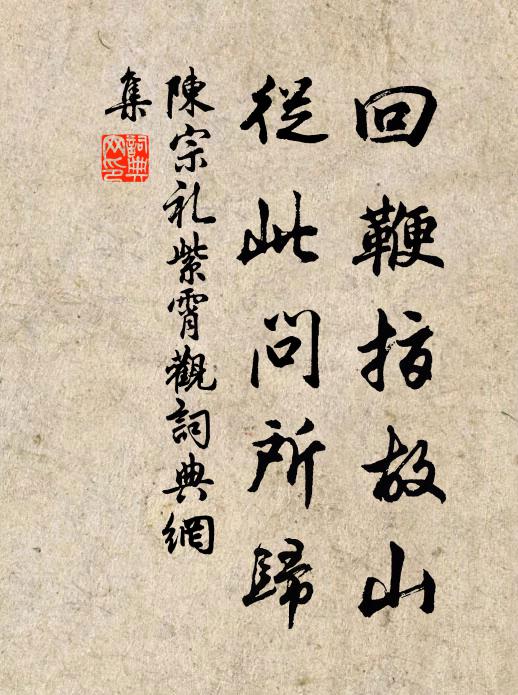 回鞭指故山
從此問所歸
陳宗礼紫霄觀詞典網
集
詞典
网印